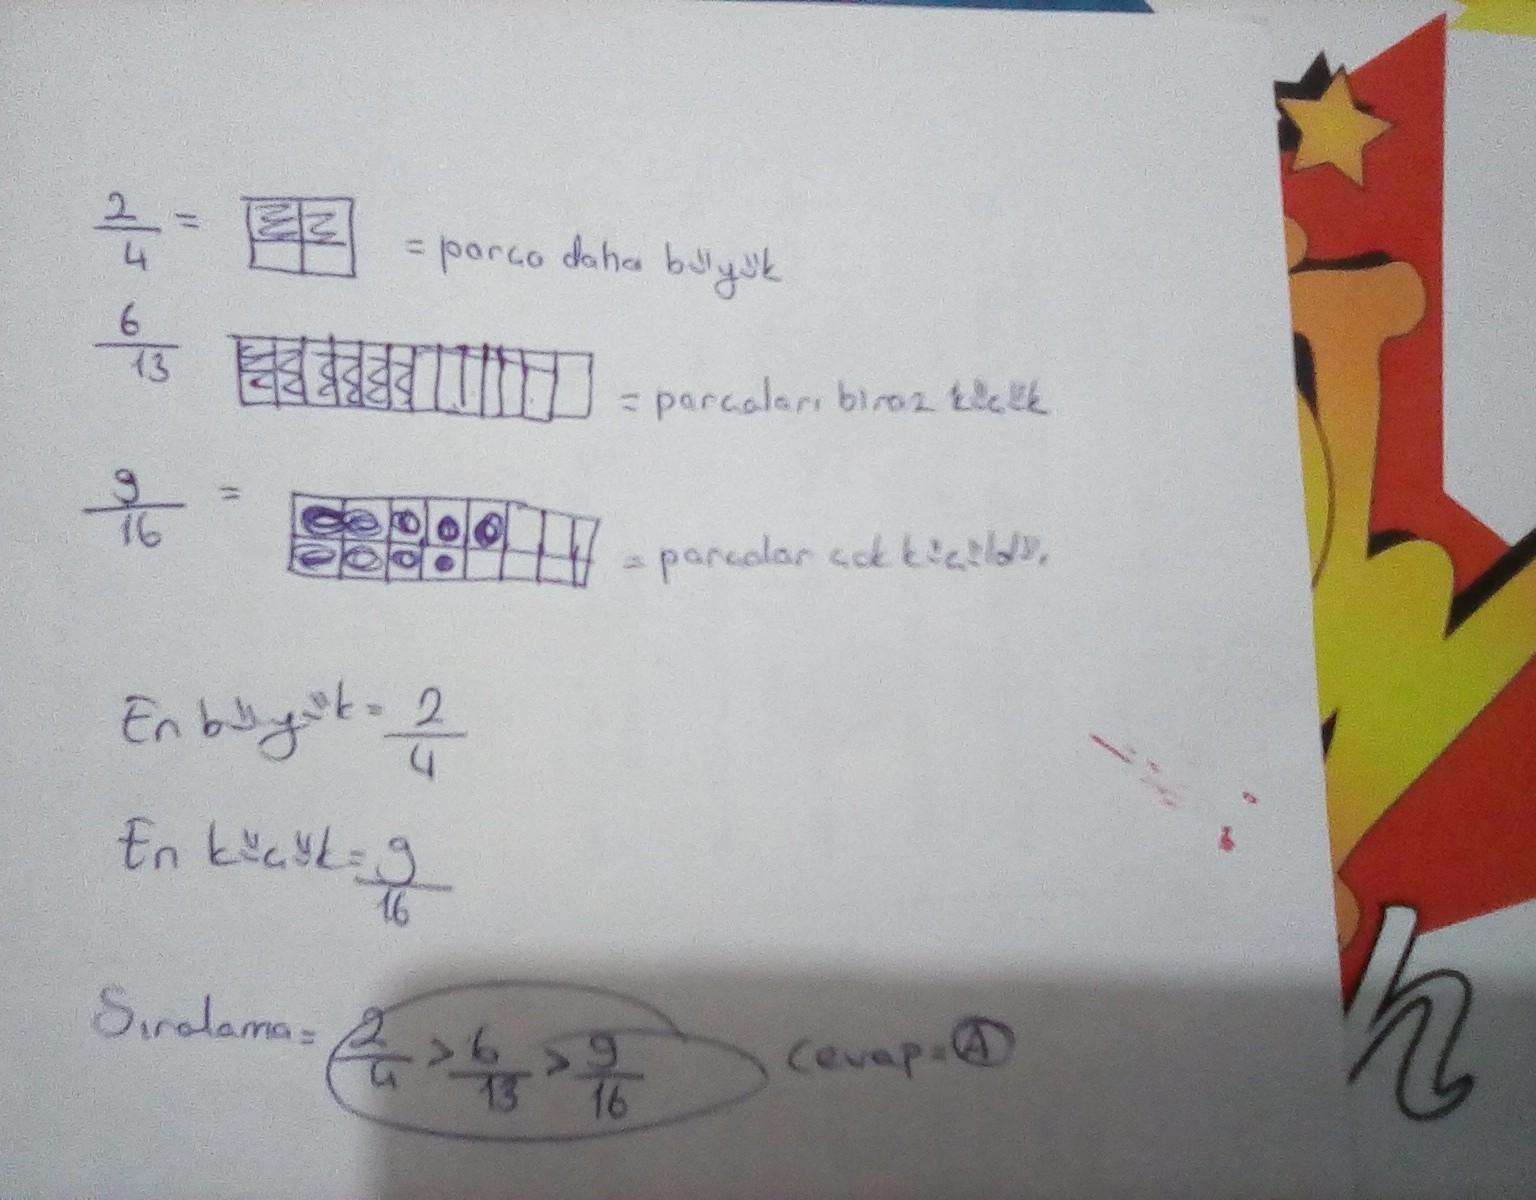 2/4 = = parça daha büyük
6/13 = parçaları biraz küçük
9/16 = = parçalar çok küçüldü.
En büyük = 2/4
En küçük = 9/16
Sıralama = 2/4 > 6/13 > 9/16 Cevap = A